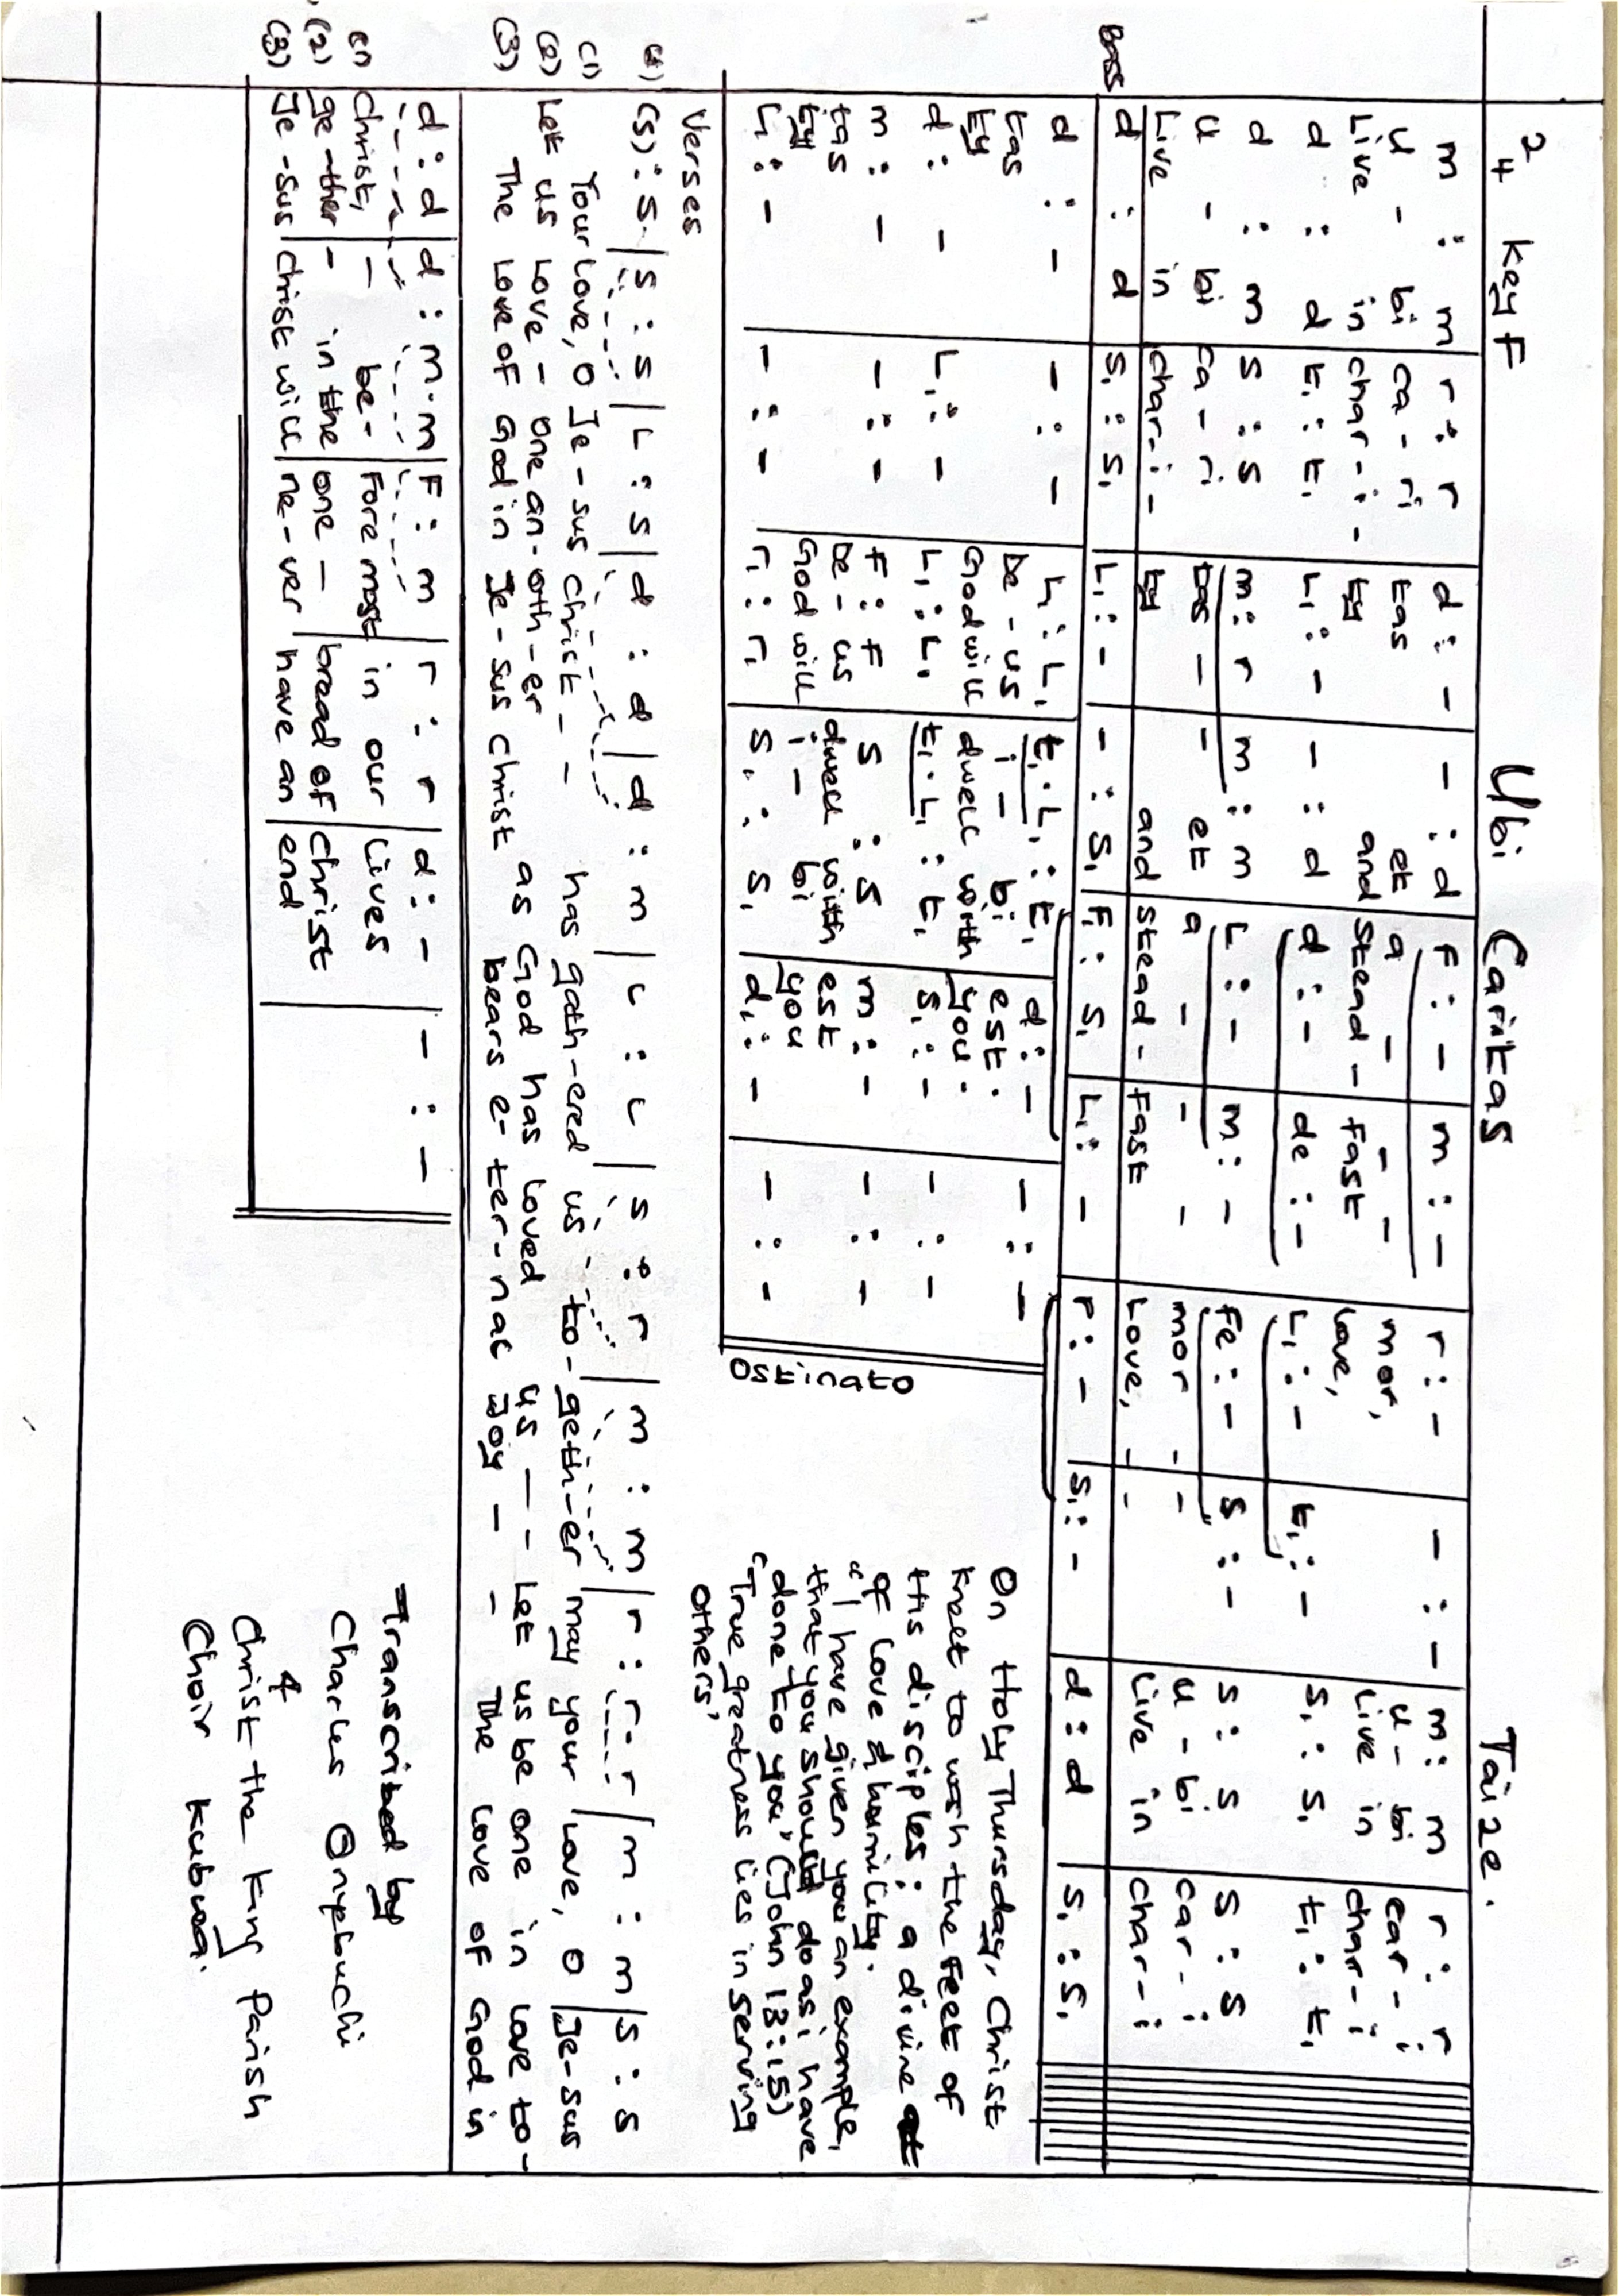 Ubi Caritas Taize.
2/4 key F
m : m | r : r | d : - | - : d | F : - | m : - | r : - | - : - | m : m | r : r
u - bi ca - ri tas et a - - - mor, u - bi car - i
Live in char - i - ty and Stead - fast love, Live in char - i
d : d | t₁ : t₁ | L₁ : - | - : d | d : - | de : - | L₁ : - | t₁ : - | s₁ : s₁ | t₁ : t₁
d : m | s : s | m : r | m : m | L : - | m : - | Fe : - | s : - | s : s | s : s
u - bi ca - ri tas - - et a - - - mor - - u - bi car - i
Live in char - i - ty and Stead - fast Love, - - Live in char - i
Bass d : d | s₁ : s₁ | L₁ : - | - : s₁ | F₁ : s₁ | L₁ : - | r : - | s₁ : - | d : d | s₁ : s₁
d : - | - : - | L₁ : L₁ | t₁ . L₁ : t₁ | d : - | - : -
tas De - us i - bi est .
ty God will dwell with you .
d : - | L₁ : - | L₁ : L₁ | t₁ . L₁ : t₁ | s₁ : - | - : -
m : - | - : - | F : F | s : s | m : - | - : -
tas De - us dwell with est
ty God will i - bi you
L₁ : - | - : - | r₁ : r₁ | s₁ : s₁ | d₁ : - | - : -
Ostinato
On Holy Thursday, Christ
knelt to wash the feet of
His disciples; a divine act
of love & humility.
"I have given you an example,
that you should do as i have
done to you" (John 13:15)
"True greatness lies in serving
others"
Verses
(s) : s . | s : s | L : s | d : d | d : m | L : L | s : r | m : m | r : r . r | m : m | s : s
(1) Your love, O Je - sus Christ - - has gath - ered us to - geth - er may your love, O Je - sus
(2) Let us love - one an - oth - er as God has loved us - - Let us be one in love to -
(3) The Love of God in Je - sus Christ bears e - ter - nal Joy - - The love of God in
d : d | d : m . m | F : m | r : r | d : - | - : -
(1) Christ, - be - fore most in our Lives
(2) ge - ther - in the one - bread of Christ
(3) Je - sus Christ will ne - ver have an end
Transcribed by
Charles Onyebuchi
&
Christ the King Parish
Choir Kubwa.